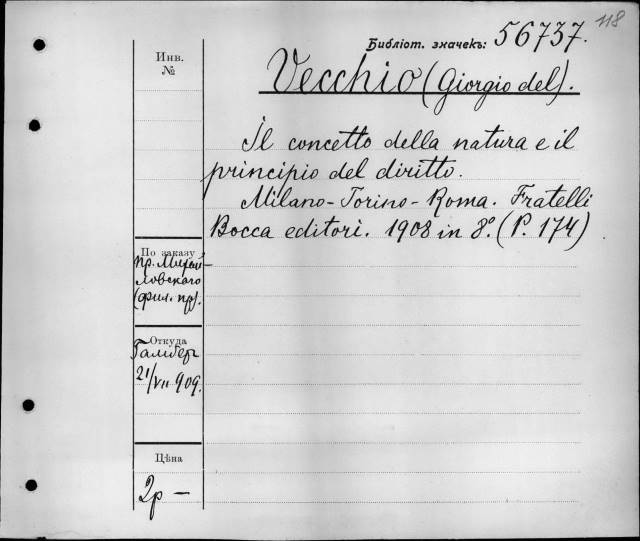 118
Библіот. значекъ: 56737.
Инв.
№
Vecchio (Giorgio del).
Il concetto della natura e il
principio del diritto.
Milano-Torino-Roma. Fratelli
Bocca editori. 1908 in 8°. (P. 174)
По заказу
пр. Михай-
ловскаго
(фил. пр).
Откуда
Гамбер
21/VII 909.
Цѣна
2р —